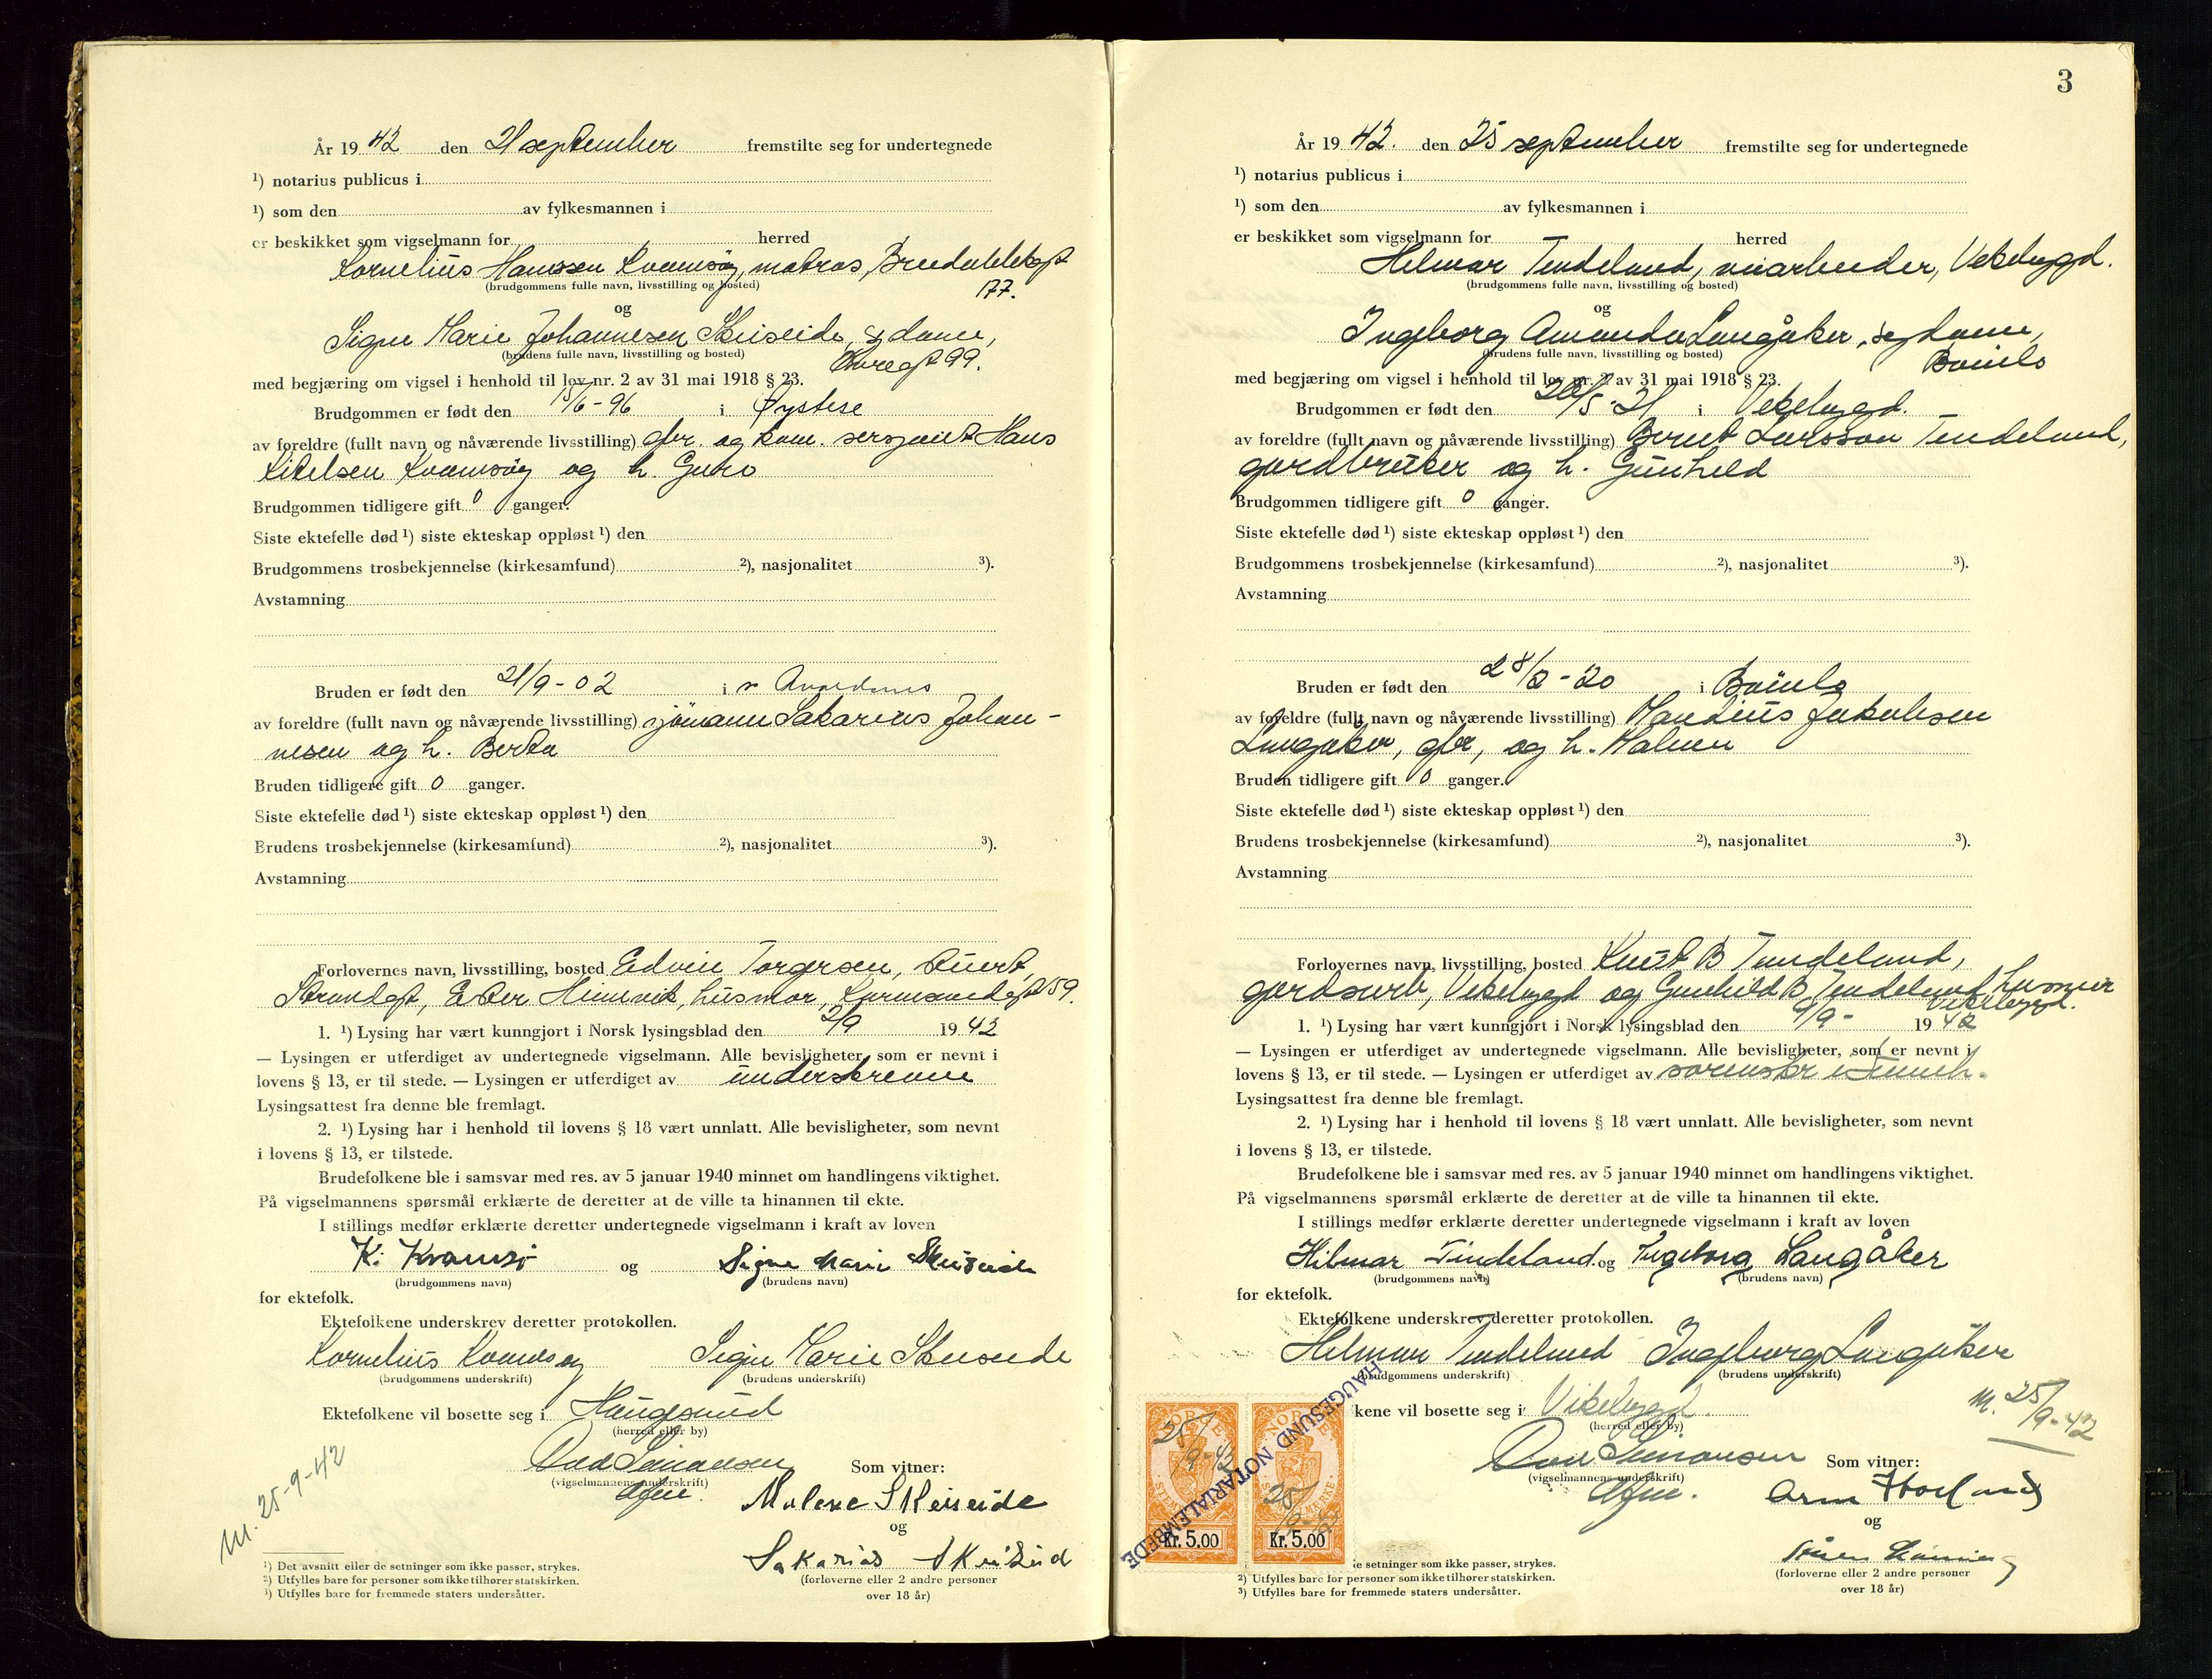 År 19 42 den 21 september fremstilte seg for undertegnede
1) notarius publicus i
1) som den av fylkesmannen i
er beskikket som vigselmann for herred
Kornelius Hanssen Kvamsøy, matros,
(brudgommens fulle navn, livsstilling og bosted)
177.
og
Signe Marie Johannesen Skeiseide, sydame,
(brudens fulle navn, livsstilling og bosted)
99.
med begjæring om vigsel i henhold til lov nr. 2 av 31 mai 1918 § 23.
Brudgommen er født den 15/6-96 i Øystese
av foreldre (fullt navn og nåværende livsstilling) gbr. og kom. sersjant Hans
Kitelsen Kvamsøy og h. Guro
Brudgommen tidligere gift 0 ganger.
Siste ektefelle død 1) siste ekteskap oppløst 1) den
Brudgommens trosbekjennelse (kirkesamfund) 2), nasjonalitet 3).
Avstamning
Bruden er født den 21/9-02 i
av foreldre (fullt navn og nåværende livsstilling) sjömann Sakarias Johan-
nesen og h. Berta
Bruden tidligere gift 0 ganger.
Siste ektefelle død 1) siste ekteskap oppløst 1) den
Brudens trosbekjennelse (kirkesamfund) 2), nasjonalitet 3).
Avstamning
Forlovernes navn, livsstilling, bosted Edvin Torgersen, stuert,
Strandgt, Ester Hinnvik, husmor, Karmsundgt 59.
1. 1) Lysing har vært kunngjort i Norsk lysingsblad den 2/9 19 42
— Lysingen er utferdiget av undertegnede vigselmann. Alle bevisligheter, som er nevnt i
lovens § 13, er til stede. — Lysingen er utferdiget av underskrevne
Lysingsattest fra denne ble fremlagt.
2. 1) Lysing har i henhold til lovens § 18 vært unnlatt. Alle bevisligheter, som nevnt
i lovens § 13, er tilstede.
Brudefolkene ble i samsvar med res. av 5 januar 1940 minnet om handlingens viktighet.
På vigselmannens spørsmål erklærte de deretter at de ville ta hinannen til ekte.
I stillings medfør erklærte deretter undertegnede vigselmann i kraft av loven
K. Kvamsö og Signe Marie Skeiseide
(brudgommens navn) (brudens navn)
for ektefolk.
Ektefolkene underskrev deretter protokollen.
Kornelius Kvamsøy Signe Marie Skeiseide
(brudgommens underskrift) (brudens underskrift)
Ektefolkene vil bosette seg i Haugesund
(herred eller by)
Simonsen Som vitner:
(vigselmannens underskrift)
Malene Skeiseide
og
Sakarias Skeiseid
(forloverne eller 2 andre personer
over 18 år)
M. 25-9-42
1) Det avsnitt eller de setninger som ikke passer, strykes.
2) Utfylles bare for personer som ikke tilhører statskirken.
3) Utfylles bare for fremmede staters undersåtter.
3
År 19 42. den 25 september fremstilte seg for undertegnede
1) notarius publicus i
1) som den av fylkesmannen i
er beskikket som vigselmann for herred
Hilmar Tindeland, Vikebygd.
(brudgommens fulle navn, livsstilling og bosted)
og
Ingeborg Amanda Langåker, sydame,
(brudens fulle navn, livsstilling og bosted)
Bømlo
med begjæring om vigsel i henhold til lov nr. 2 av 31 mai 1918 § 23.
Brudgommen er født den 20/5-21 i Vikebygd.
av foreldre (fullt navn og nåværende livsstilling) Bernt Larsson Tindeland,
gardbruker og h. Gunhild
Brudgommen tidligere gift 0 ganger.
Siste ektefelle død 1) siste ekteskap oppløst 1) den
Brudgommens trosbekjennelse (kirkesamfund) 2), nasjonalitet 3).
Avstamning
Bruden er født den 28/2-20 i Bømlo
av foreldre (fullt navn og nåværende livsstilling) Jakobsen
Langåker, gbr, og h. Malene
Bruden tidligere gift 0 ganger.
Siste ektefelle død 1) siste ekteskap oppløst 1) den
Brudens trosbekjennelse (kirkesamfund) 2), nasjonalitet 3).
Avstamning
Forlovernes navn, livsstilling, bosted Knut B Tindeland,
gardsarb, Vikebygd og Gunhild B Tindeland husmor
Vikebygd.
1. 1) Lysing har vært kunngjort i Norsk lysingsblad den 9/9- 19 42
— Lysingen er utferdiget av undertegnede vigselmann. Alle bevisligheter, som er nevnt i
lovens § 13, er til stede. — Lysingen er utferdiget av sorenskr
Lysingsattest fra denne ble fremlagt.
2. 1) Lysing har i henhold til lovens § 18 vært unnlatt. Alle bevisligheter, som nevnt
i lovens § 13, er tilstede.
Brudefolkene ble i samsvar med res. av 5 januar 1940 minnet om handlingens viktighet.
På vigselmannens spørsmål erklærte de deretter at de ville ta hinannen til ekte.
I stillings medfør erklærte deretter undertegnede vigselmann i kraft av loven
Hilmar Tindeland og Ingeborg Langåker
(brudgommens navn) (brudens navn)
for ektefolk.
Ektefolkene underskrev deretter protokollen.
Hilmar Tindeland Ingeborg Langåker
(brudgommens underskrift) (brudens underskrift)
kene vil bosette seg i Vikebygd.
(herred eller by)
M. 25/9-42
Simonsen Som vitner:
(vigselmannens underskrift)
Arne Hovland
og
(forloverne eller 2 andre personer
over 18 år)
HAUGESUND NOTARIALEMBEDE
NORGE NORGE
25/9-42 25/9-42
Kr. 5.00 Kr. 5.00
e setninger som ikke passer, strykes.
2) Utfylles bare for personer som ikke tilhører statskirken.
3) Utfylles bare for fremmede staters undersåtter.